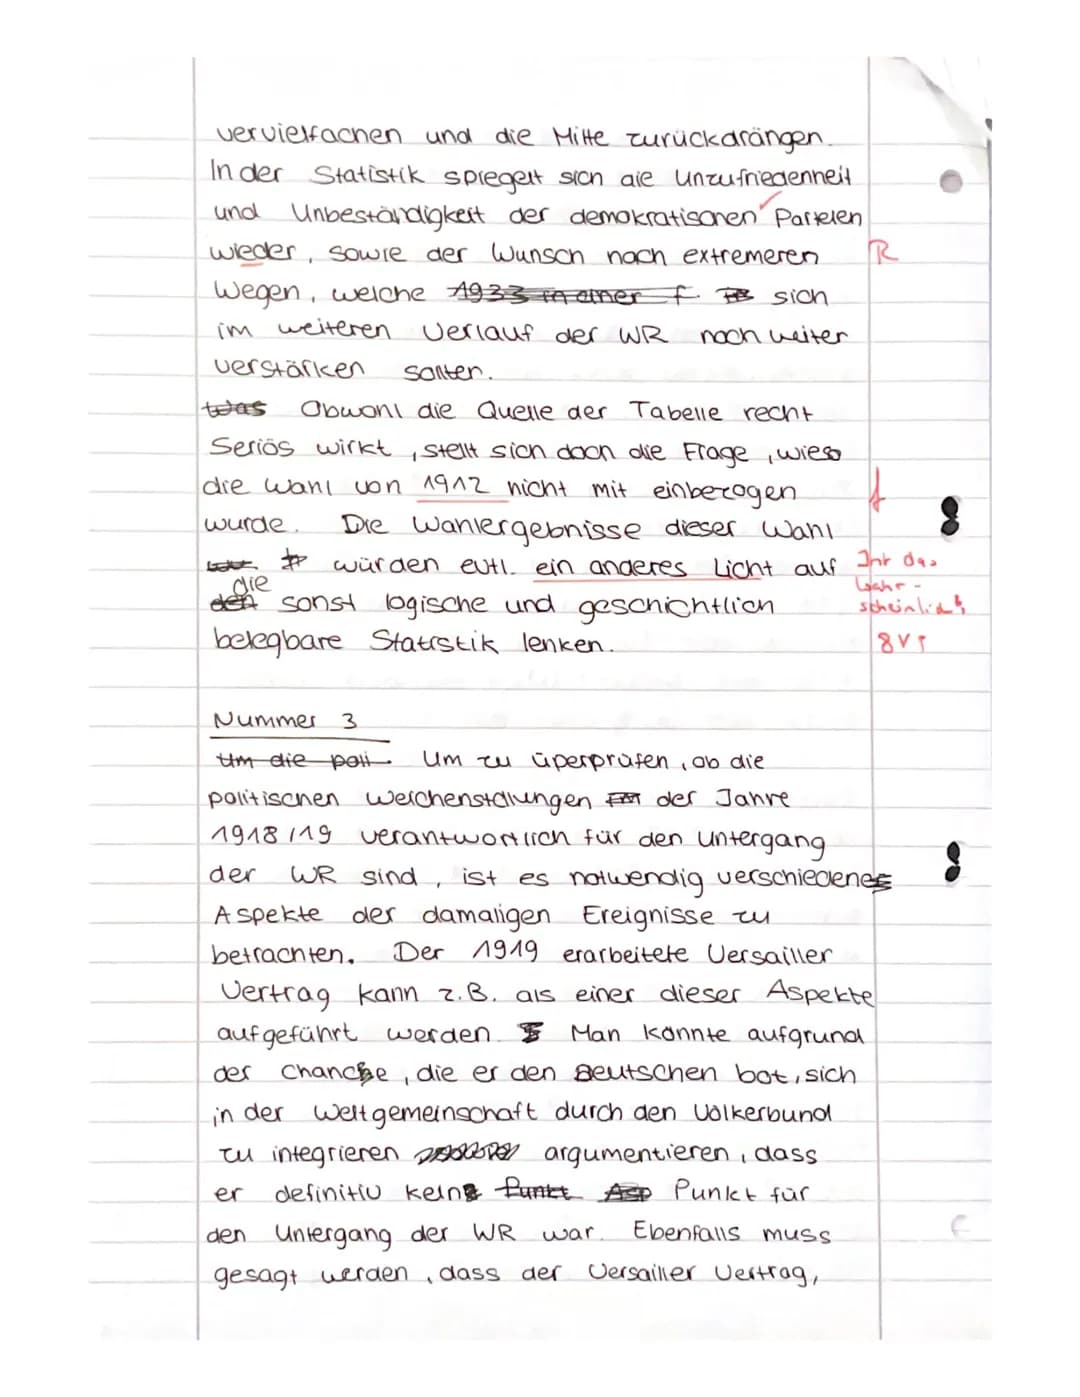 vervielfachen und die Mitte zurückdrängen.
In der Statistik spiegelt sich die Unzufriedenheit
und Unbeständigkeit der demokratischen Parteien
wieder, sowie der Wunsch nach extremeren R
Wegen, welche 1933 in einer f. sich
im weiteren Verlauf der WR noch weiter
verstärken sollten.
Was Obwohl die Quelle der Tabelle recht
Seriös wirkt, stellt sich doch die Frage, wieso
die Wahl von 1912 nicht mit einbezogen
wurde. Die Wahlergebnisse dieser Wahl
würden evtl. ein anderes Licht auf Ist das
die wahr-
den sonst logische und geschichtlich scheinlich?
belegbare Statistik lenken.
Nummer 3
Um die poli Um zu überprüfen, ob die
politischen Weichenstellungen der Jahre
1918/19 verantwortlich für den Untergang
der WR sind, ist es notwendig verschiedene
Aspekte der damaligen Ereignisse zu
betrachten. Der 1919 erarbeitete Versailler
Vertrag kann z.B. als einer dieser Aspekte
aufgeführt werden. Man könnte aufgrund
der Chance, die er den Deutschen bot, sich
in der Weltgemeinschaft durch den Völkerbund
zu integrieren argumentieren, dass
er definitiv kein Punkt Asp Punkt für
den Untergang der WR war. Ebenfalls muss
gesagt werden, dass der Versailler Vertrag,